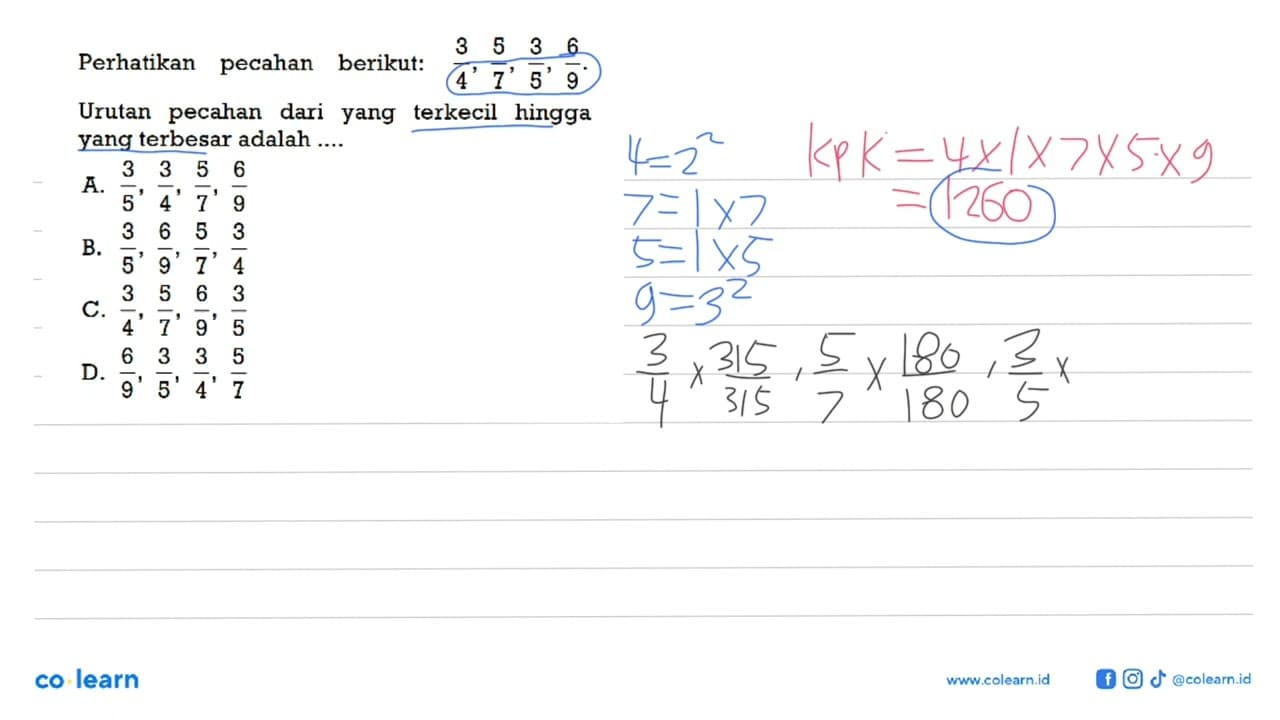 Perhatikan pecahan berikut: 3/4, 5/7, 3/5, 6/9.
Urutan pecahan dari yang terkecil hingga
yang terbesar adalah ....
A. 3/5, 3/4, 5/7, 6/9
B. 3/5, 6/9, 5/7, 3/4
C. 3/4, 5/7, 6/9, 3/5
D. 6/9, 3/5, 3/4, 5/7
4=2²
7=1×7
5=1×5
9=3²
KPK=4×1×7×5×9
=1260
3/4 × 315/315, 5/7 × 180/180, 3/5 ×
co learn
www.colearn.id
@colearn.id